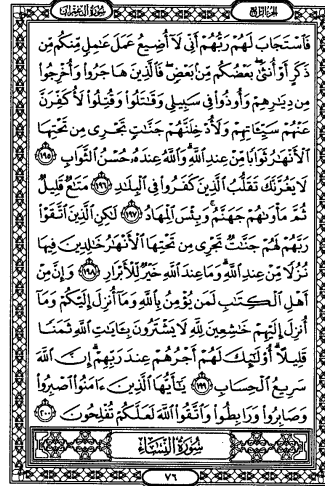 سُورَةُ آلِ عِمْرَانَ
الجُزْءُ الرَّابِعُ
فَاسْتَجَابَ لَهُمْ رَبُّهُمْ أَنِّي لَا أُضِيعُ عَمَلَ عَامِلٍ مِنكُم مِن
ذَكَرٍ أَوْ أُنثَىٰ بَعْضُكُم مِنْ بَعْضٍ فَالَّذِينَ هَاجَرُوا وَأُخْرِجُوا
مِن دِيَارِهِمْ وَأُوذُوا فِي سَبِيلِي وَقَاتَلُوا وَقُتِلُوا لَأُكَفِّرَنَّ
عَنْهُمْ سَيِّئَاتِهِمْ وَلَأُدْخِلَنَّهُمْ جَنَّاتٍ تَجْرِي مِن تَحْتِهَا
الْأَنْهَارُ ثَوَابًا مِنْ عِندِ اللَّهِ وَاللَّهُ عِندَهُ حُسْنُ الثَّوَابِ ١٩٥
لَا يَغُرَّنَّكَ تَقَلُّبُ الَّذِينَ كَفَرُوا فِي الْبِلَادِ ١٩٦ مَتَاعٌ قَلِيلٌ
ثُمَّ مَأْوَاهُمْ جَهَنَّمُ وَبِئْسَ الْمِهَادُ ١٩٧ لَٰكِنِ الَّذِينَ اتَّقَوْا
رَبَّهُمْ لَهُمْ جَنَّاتٌ تَجْرِي مِن تَحْتِهَا الْأَنْهَارُ خَالِدِينَ فِيهَا
نُزُلًا مِنْ عِندِ اللَّهِ وَمَا عِندَ اللَّهِ خَيْرٌ لِلْأَبْرَارِ ١٩٨ وَإِنَّ مِنْ
أَهْلِ الْكِتَابِ لَمَن يُؤْمِنُ بِاللَّهِ وَمَا أُنزِلَ إِلَيْكُمْ وَمَا
أُنزِلَ إِلَيْهِمْ خَاشِعِينَ لِلَّهِ لَا يَشْتَرُونَ بِآيَاتِ اللَّهِ ثَمَنًا
قَلِيلًا أُولَٰئِكَ لَهُمْ أَجْرُهُمْ عِندَ رَبِّهِمْ إِنَّ اللَّهَ
سَرِيعُ الْحِسَابِ ١٩٩ يَا أَيُّهَا الَّذِينَ آمَنُوا اصْبِرُوا
وَصَابِرُوا وَرَابِطُوا وَاتَّقُوا اللَّهَ لَعَلَّكُمْ تُفْلِحُونَ ٢٠٠
سُورَةُ النِّسَاءِ
٧٦